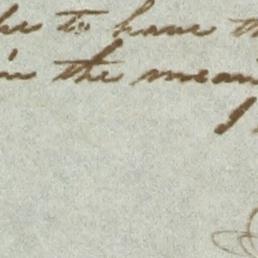 he to have th
in the mean
I